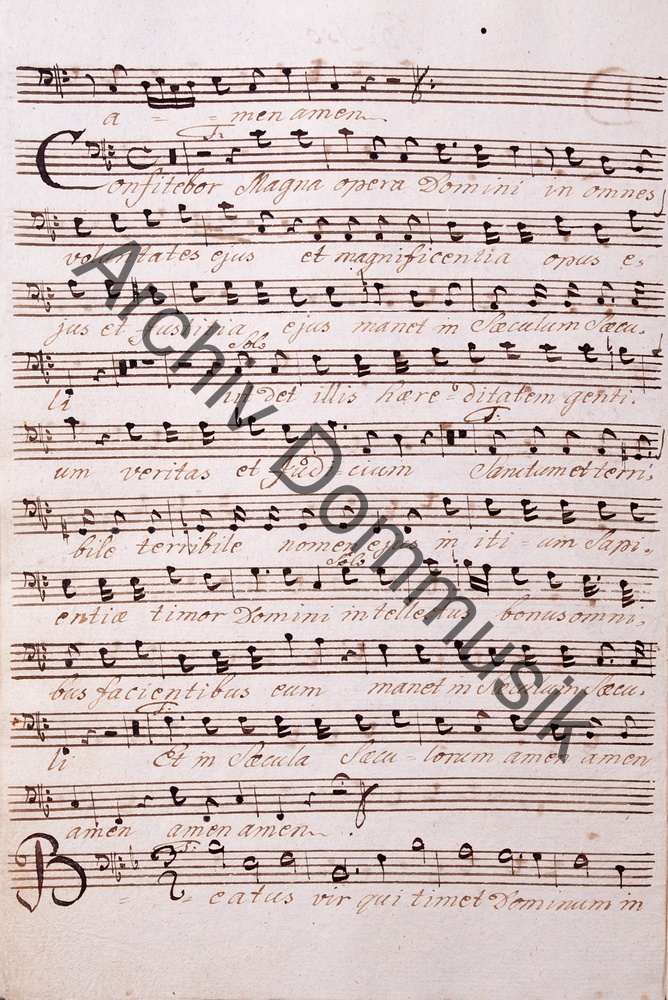 a - - men amen
Confitebor Magna opera Domini in omnes
voluntates ejus et magnificentia opus e,
jus et Justitia ejus manet in Sæculum Sæcu,
Solo
li ut det illis hære-ditatem genti,
T:
um veritas et Judi-cium Sanctum et terri,
bile terribile nomen ejus in iti-um Sapi,
Solo
entiæ timor Domini intellectus bonus omni,
bus facientibus eum manet in Sæculum Sæcu,
T:
li Et in Sæcula Sæcu-lorum amen amen
amen amen amen
Beatus vir qui timet Dominum in
Archiv Dommusik